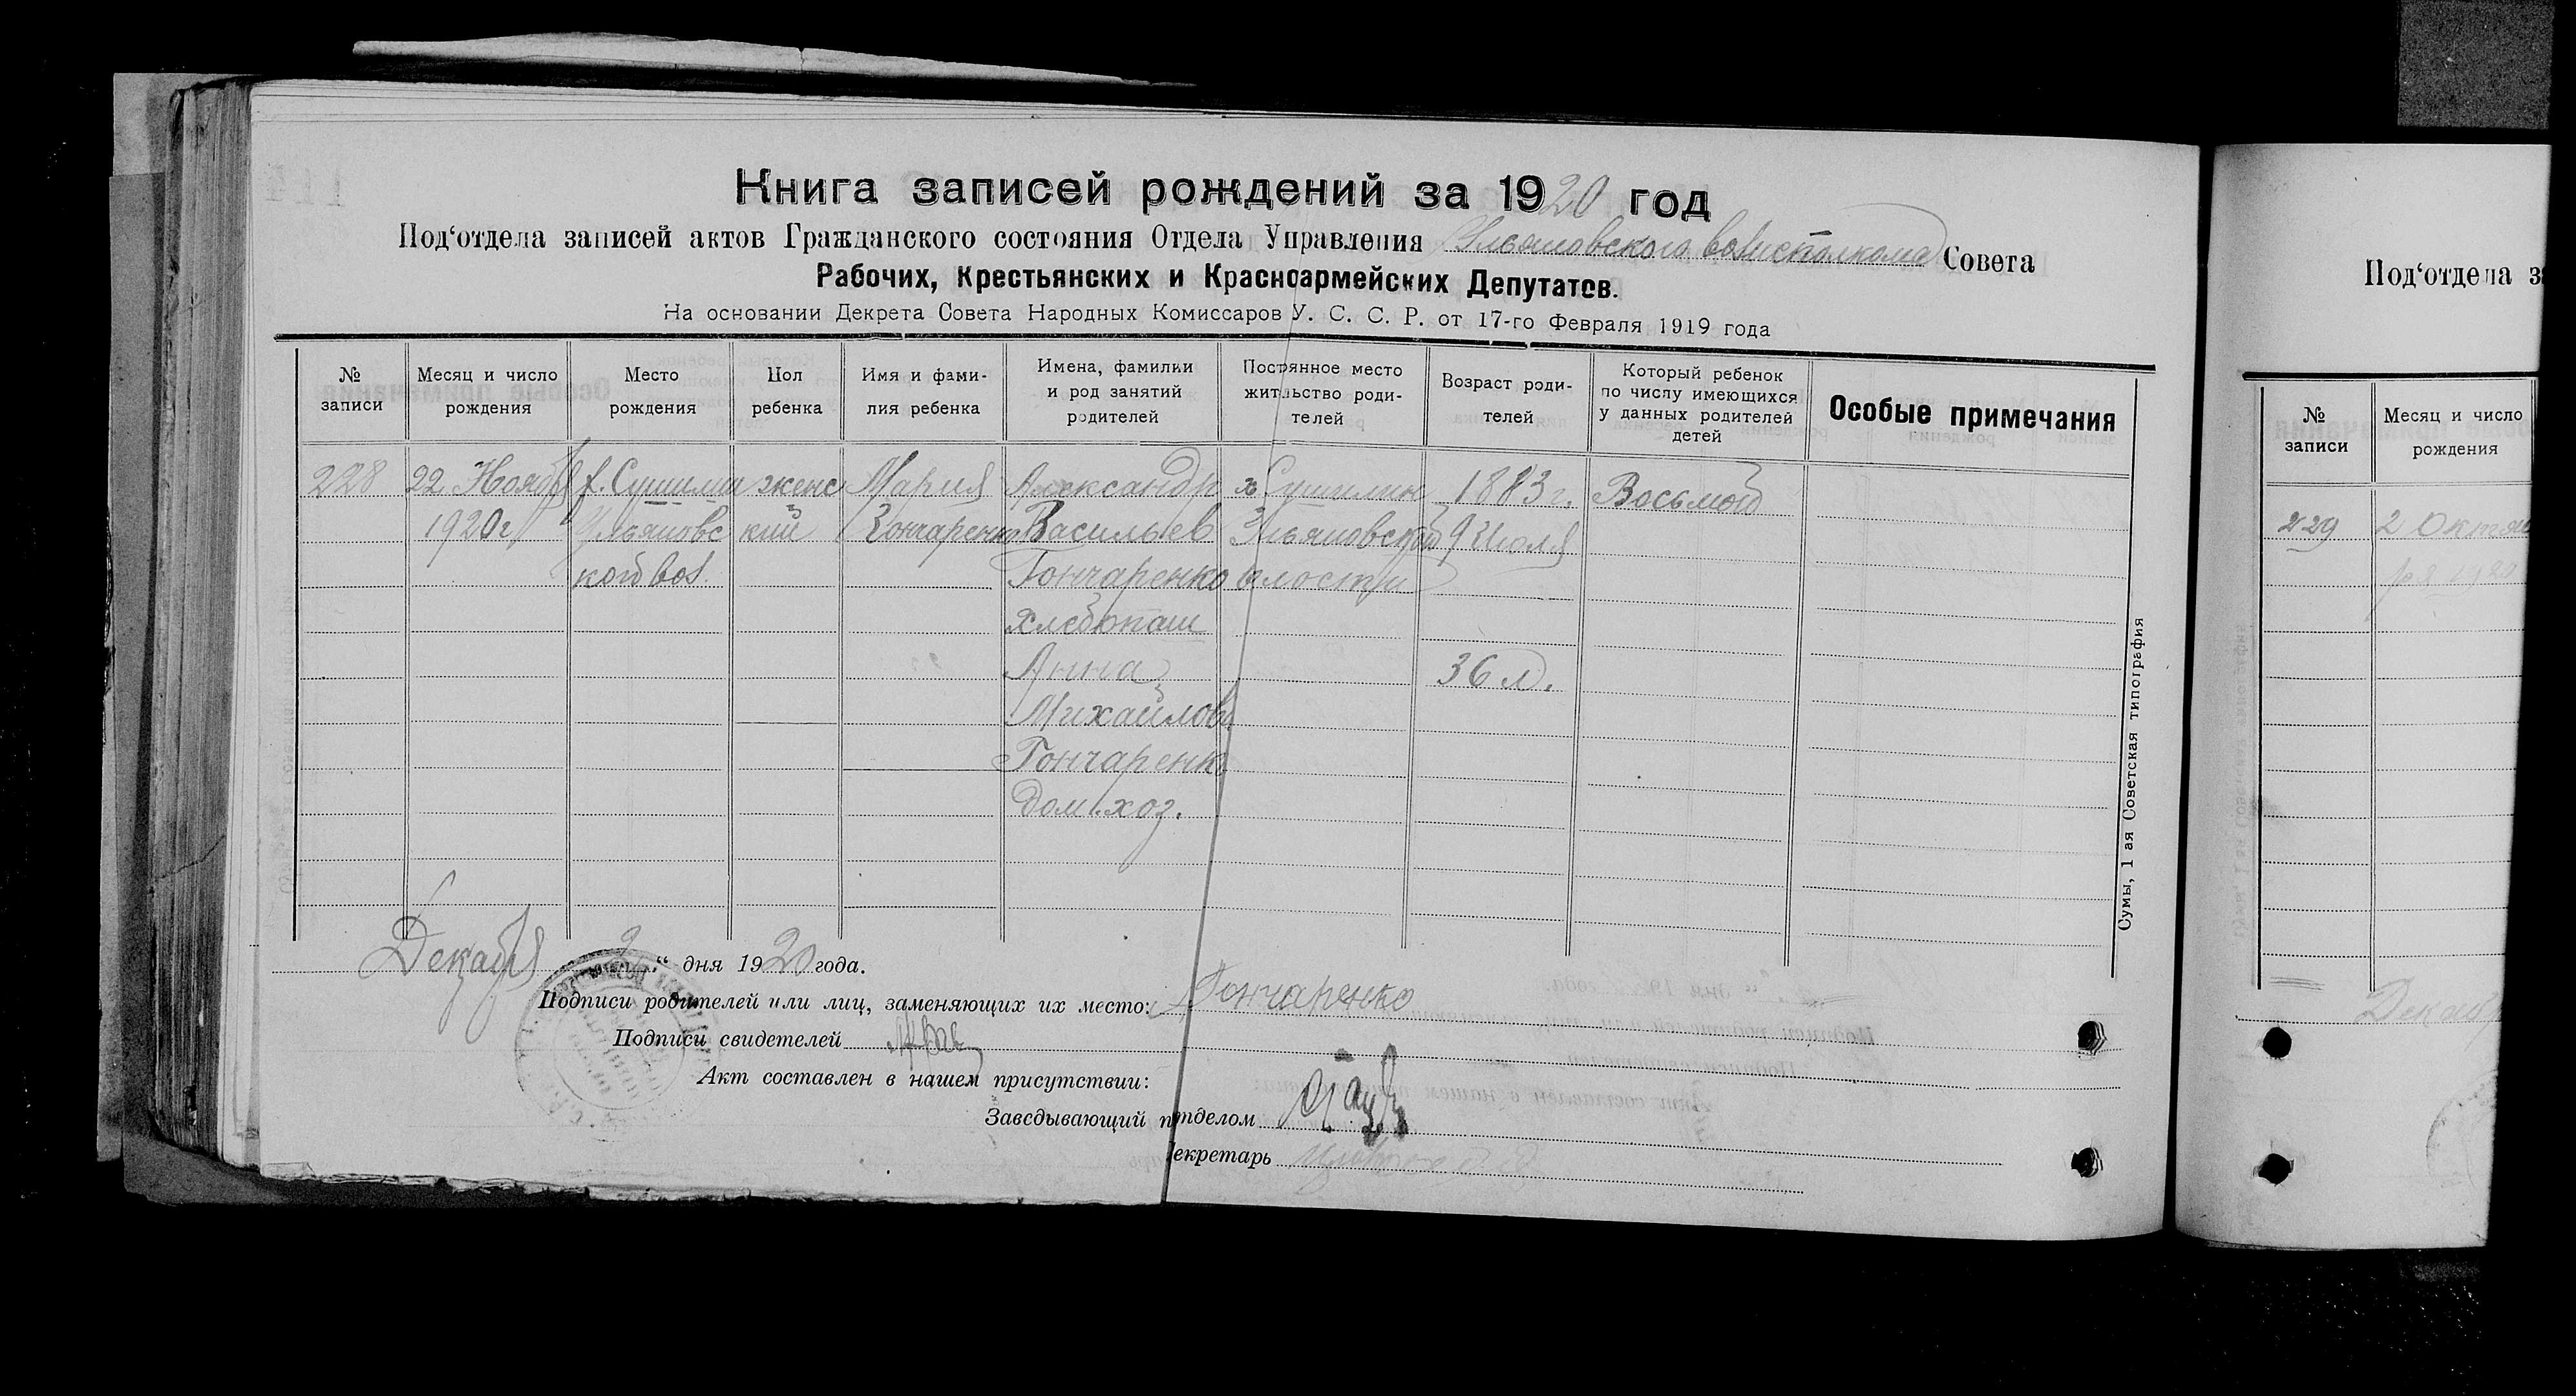 Книга записей рождений за 1920 год
Под‘отдела записей актов Гражданского состояния Отдела Управления Ульяновского волисполкома Совета
Рабочих, Крестьянских и Красноармейских Депутатов.
На основании Декрета Совета Народных Комиссаров У. С. С. Р. от 17-го Февраля 1919 года
№ записи
Месяц и число рождения
Место рождения
Пол ребенка
Имя и фамилия ребенка
Имена, фамилии и род занятий родителей
Постоянное место жительство родителей
Возраст родителей
Который ребенок по числу имеющихся у данных родителей детей
Особые примечания
228 22 Ноября х. Сушилин женс Мария Александр х Сушилин 1883 г. Восьмой
1920 г Ульяновс кий Гончаренко Васильев Ульяновской 9 Июля
кой вол. Гончаренко волости
хлебопаш
Анна 36 л.
Михайлов
Гончаренк
дом. хоз.
Декабря 9 “ дня 1920 года.
Подписи родителей или лиц, заменяющих их место: Гончаренко
Подписи свидетелей
Акт составлен в нашем присутствии:
Заведывающий п/отделом
Секретарь
Сумы, 1 ая Советская типография
Под‘отдела за
№ записи
Месяц и число рождения
229 2 Октяб
ря 1920
Декабр